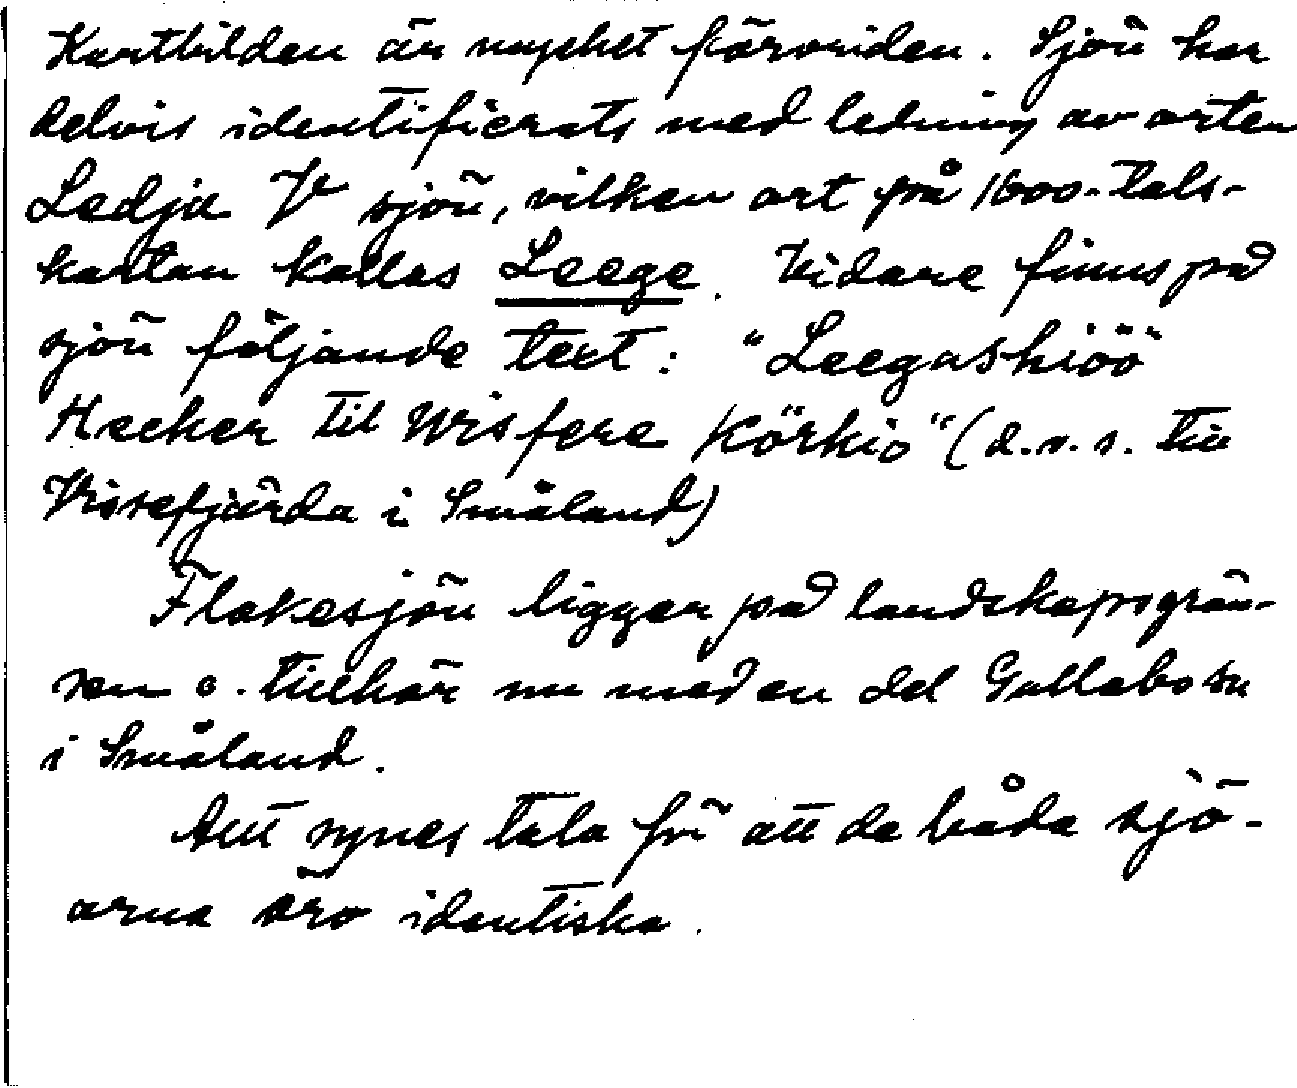 Kartbilden är mycket förvriden. Sjön har
delvis identifierats med ledning av orten
Ledja V sjön, vilken ort på 1600-tals-
kartan kallas Leege. Vidare finns på
sjön följande text: "Leegashiöö
Recker til Wisfere Körkio" (d.v.s. till
Vissefjärda i Småland)
Flakesjön ligger på landskapsgrän-
sen o. tillhör nu med en del Gullabo sn
i Småland.
Allt synes tala för att de båda sjö-
arna äro identiska.